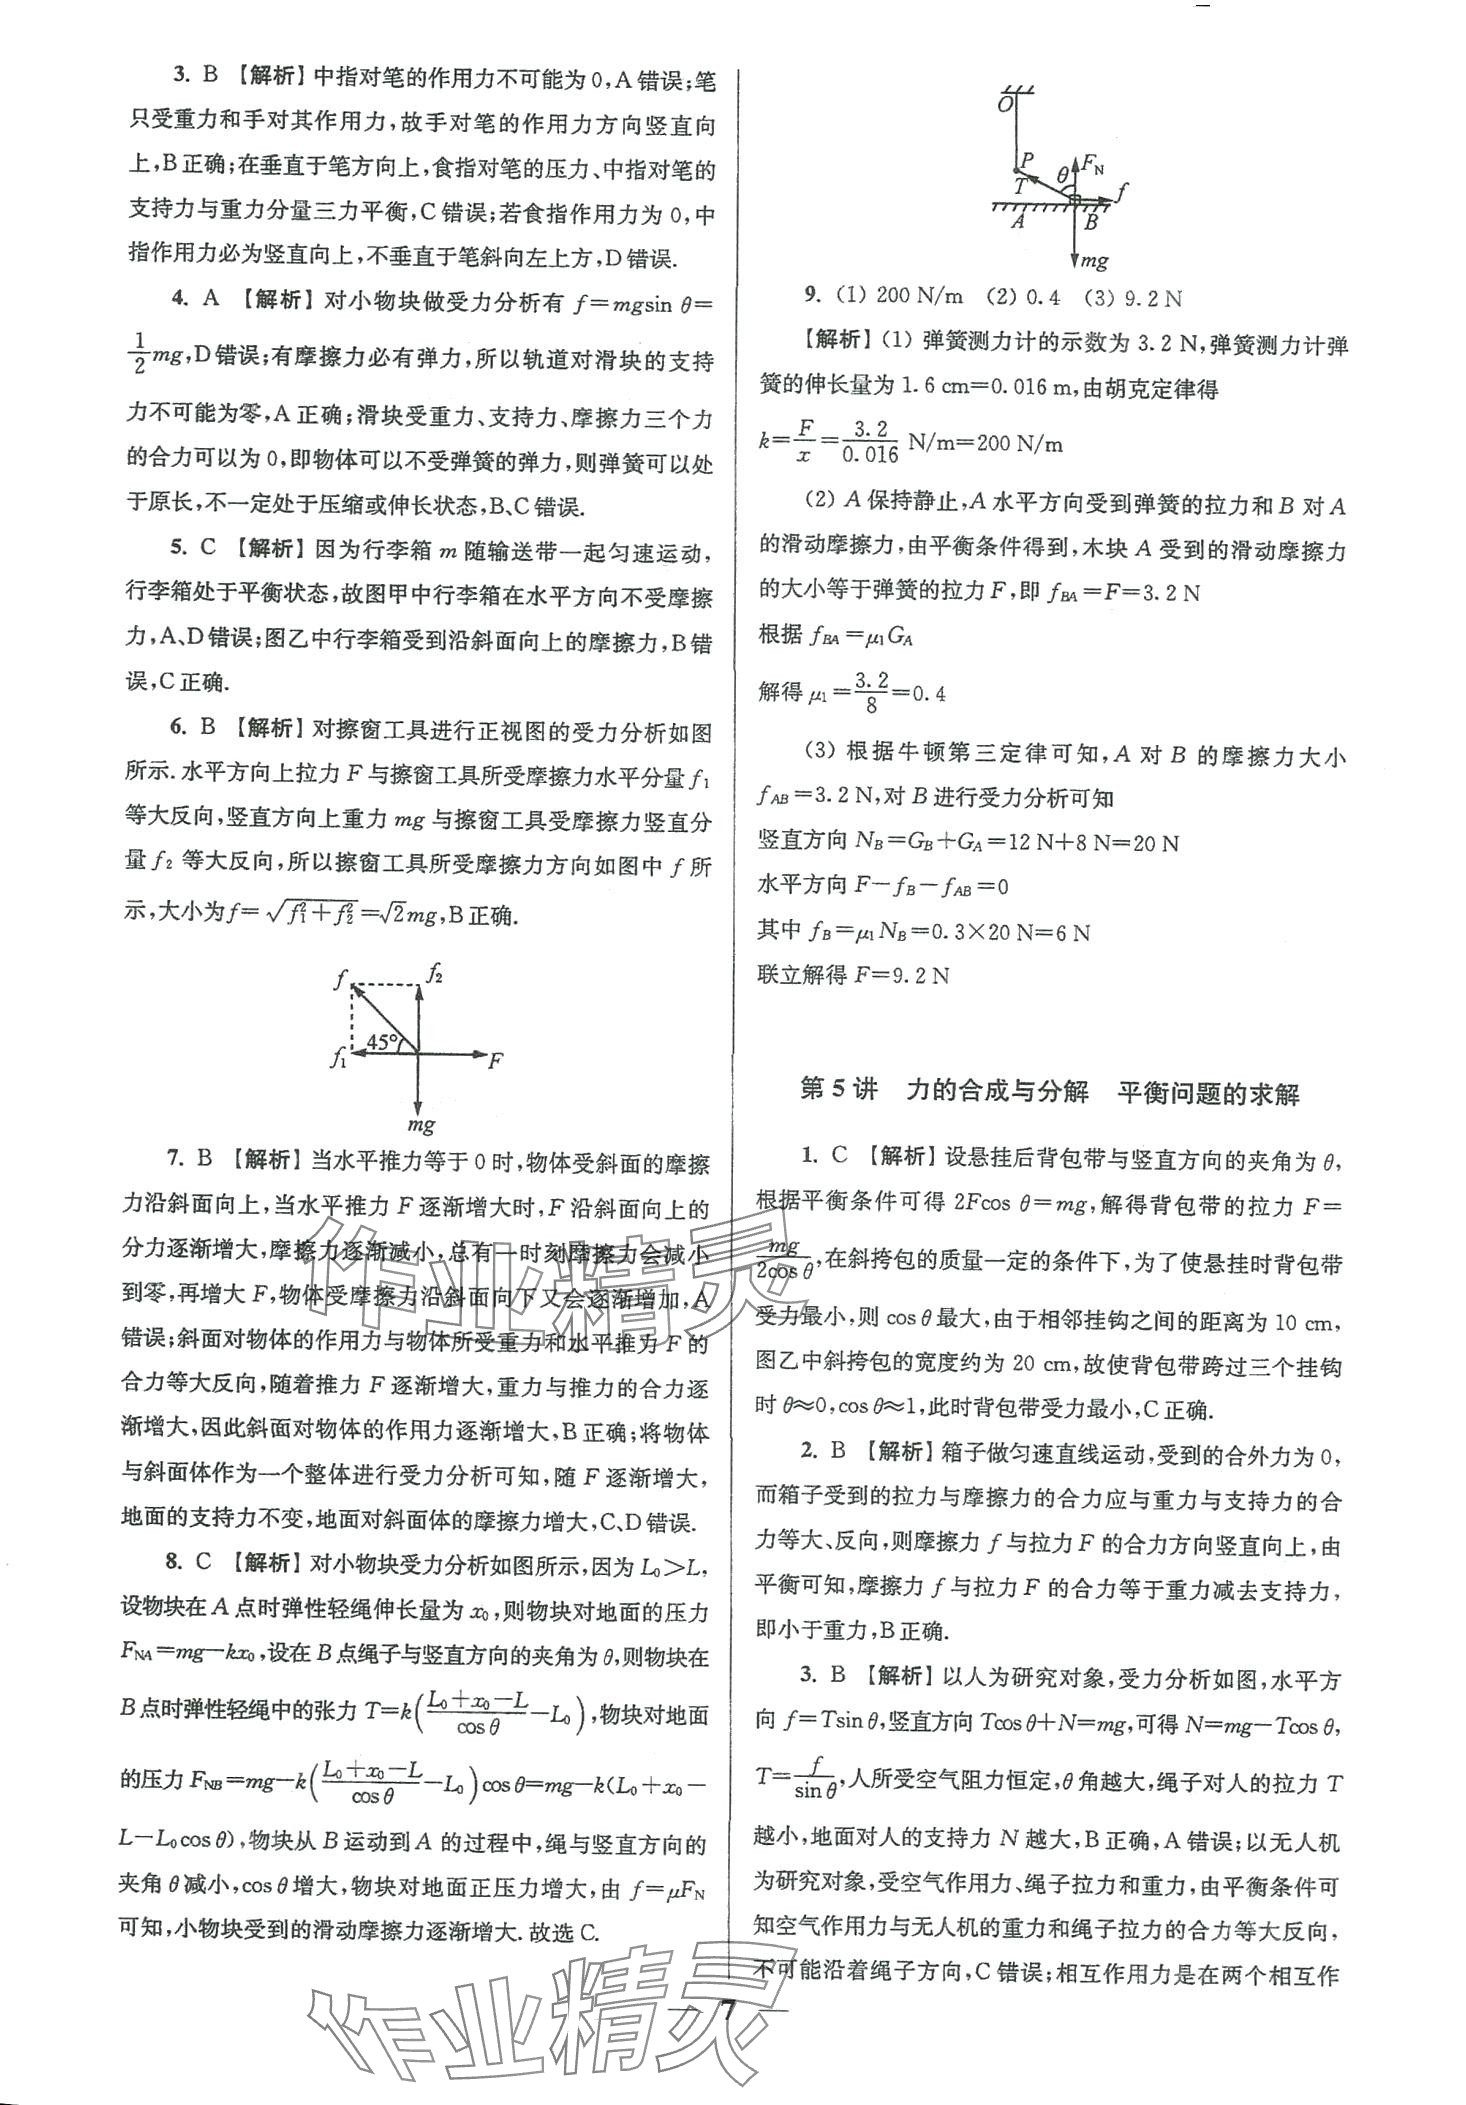 3. B 【解析】中指对笔的作用力不可能为0,A错误;笔
只受重力和手对其作用力,故手对笔的作用力方向竖直向
上,B正确;在垂直于笔方向上,食指对笔的压力、中指对笔的
支持力与重力分量三力平衡,C错误;若食指作用力为0,中
指作用力必为竖直向上,不垂直于笔斜向左上方,D错误.
4. A 【解析】对小物块做受力分析有 f=mgsin θ=
1/2 mg,D错误;有摩擦力必有弹力,所以轨道对滑块的支持
力不可能为零,A正确;滑块受重力、支持力、摩擦力三个力
的合力可以为0,即物体可以不受弹簧的弹力,则弹簧可以处
于原长,不一定处于压缩或伸长状态,B、C错误.
5. C 【解析】因为行李箱 m 随输送带一起匀速运动,
行李箱处于平衡状态,故图甲中行李箱在水平方向不受摩擦
力,A、D错误;图乙中行李箱受到沿斜面向上的摩擦力,B错
误,C正确.
6. B 【解析】对擦窗工具进行正视图的受力分析如图
所示.水平方向上拉力 F 与擦窗工具所受摩擦力水平分量 f₁
等大反向,竖直方向上重力 mg 与擦窗工具受摩擦力竖直分
量 f₂ 等大反向,所以擦窗工具所受摩擦力方向如图中 f 所
示,大小为f=√(f₁²+f₂²)=√2mg,B正确.
f f₂
45°
f₁ F
mg
7. B 【解析】当水平推力等于0时,物体受斜面的摩擦
力沿斜面向上,当水平推力 F 逐渐增大时,F 沿斜面向上的
分力逐渐增大,摩擦力逐渐减小,总有一时刻摩擦力会减小
到零,再增大 F,物体受摩擦力沿斜面向下又会逐渐增加,A
错误;斜面对物体的作用力与物体所受重力和水平推力 F 的
合力等大反向,随着推力 F 逐渐增大,重力与推力的合力逐
渐增大,因此斜面对物体的作用力逐渐增大,B正确;将物体
与斜面体作为一个整体进行受力分析可知,随 F 逐渐增大,
地面的支持力不变,地面对斜面体的摩擦力增大,C、D错误.
8. C 【解析】对小物块受力分析如图所示,因为 L₀>L,
设物块在 A 点时弹性轻绳伸长量为 x₀,则物块对地面的压力
F_NA=mg−kx₀,设在 B 点绳子与竖直方向的夹角为 θ,则物块在
B 点时弹性轻绳中的张力 T=k((L₀+x₀−L)/cos θ−L₀),物块对地面
的压力 F_NB=mg−k((L₀+x₀−L)/cos θ−L₀)cos θ=mg−k(L₀+x₀−
L−L₀cos θ),物块从 B 运动到 A 的过程中,绳与竖直方向的
夹角 θ 减小,cos θ 增大,物块对地面正压力增大,由 f=μF_N
可知,小物块受到的滑动摩擦力逐渐增大.故选C.
O
P F_N
T θ f
A B
mg
9. (1) 200 N/m (2) 0.4 (3) 9.2 N
【解析】(1) 弹簧测力计的示数为 3.2 N,弹簧测力计弹
簧的伸长量为 1.6 cm=0.016 m,由胡克定律得
k=F/x=3.2/0.016 N/m=200 N/m
(2) A 保持静止,A 水平方向受到弹簧的拉力和 B 对 A
的滑动摩擦力,由平衡条件得到,木块 A 受到的滑动摩擦力
的大小等于弹簧的拉力 F,即 f_BA=F=3.2 N
根据 f_BA=μ₁G_A
解得 μ₁=3.2/8=0.4
(3) 根据牛顿第三定律可知,A 对 B 的摩擦力大小
f_AB=3.2 N,对 B 进行受力分析可知
竖直方向 N_B=G_B+G_A=12 N+8 N=20 N
水平方向 F−f_B−f_AB=0
其中 f_B=μ₁N_B=0.3×20 N=6 N
联立解得 F=9.2 N
第 5 讲 力的合成与分解 平衡问题的求解
1. C 【解析】设悬挂后背包带与竖直方向的夹角为 θ,
根据平衡条件可得 2Fcos θ=mg,解得背包带的拉力 F=
mg/(2cos θ),在斜挎包的质量一定的条件下,为了使悬挂时背包带
受力最小,则 cos θ 最大,由于相邻挂钩之间的距离为 10 cm,
图乙中斜挎包的宽度约为 20 cm,故使背包带跨过三个挂钩
时 θ≈0,cos θ≈1,此时背包带受力最小,C正确.
2. B 【解析】箱子做匀速直线运动,受到的合外力为0,
而箱子受到的拉力与摩擦力的合力应与重力与支持力的合
力等大、反向,则摩擦力 f 与拉力 F 的合力方向竖直向上,由
平衡可知,摩擦力 f 与拉力 F 的合力等于重力减去支持力,
即小于重力,B正确.
3. B 【解析】以人为研究对象,受力分析如图,水平方
向 f=Tsin θ,竖直方向 Tcos θ+N=mg,可得 N=mg−Tcos θ,
T=f/sin θ,人所受空气阻力恒定,θ 角越大,绳子对人的拉力 T
越小,地面对人的支持力 N 越大,B正确,A错误;以无人机
为研究对象,受空气作用力、绳子拉力和重力,由平衡条件可
知空气作用力与无人机的重力和绳子拉力的合力等大反向,
不可能沿着绳子方向,C错误;相互作用力是在两个相互作
— 7 —
作业精灵
作业精灵